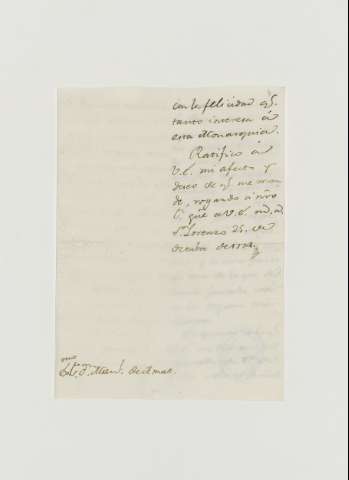 con la felicidad qe.
tanto interesa á
esta Monarquia.
Ratifico á
V.E. mi afecto y
deseo de qe. me man
de, rogando á nro
S. gue. á V.E. ms. as.
Sn. Lorenzo 25. de
Octubre de
Sor. Dn. Manl. de